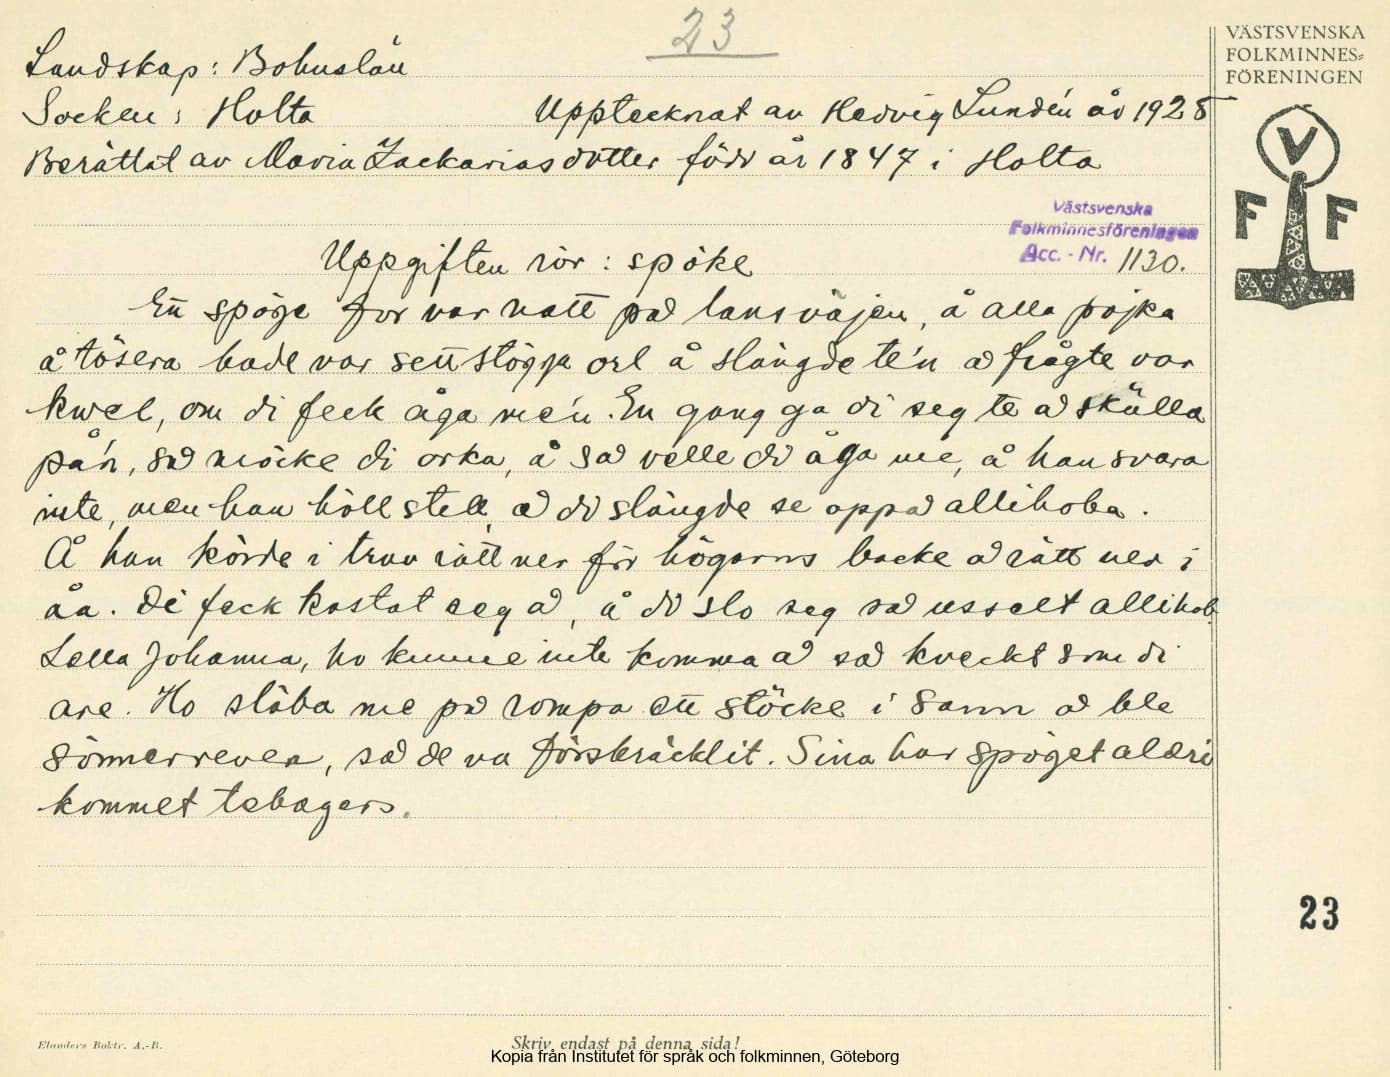 23
VÄSTSVENSKA
FOLKMINNES=
FÖRENINGEN
Landskap: Bohuslän
Socken: Holta
Upptecknat av Hedvig Lundén år 1928
Berättat av Maria Zackariasdotter född år 1847 i Holta
V
F F
Västsvenska
Folkminnesföreningen
Acc. - Nr. 1130.
Uppgiften rör: spöke
Ett spöge for var natt på lansväjen, å alla pojka
å tösera hade var sett stögga orl å slängde te'n å frågte var
kwel, om di feck åga me'n. En gang ga di seg te å skälla
på'n, så möcke di orka, å så velle di åga me, å han svara
inte, men han höll stell, å di slängde se oppå allihoba.
Å han körde i trav rätt ner för högarns backe å rätt ner i
åa. Di feck kastat seg å, å di slo seg så usselt allihob.
Lella Johanna, ho kunne inte komma å så kveckt som di
are. Ho släba me på rompa ett stöcke i sann å ble
sönnerreven, så de va förskräcklit. Sina har spöget aldri
kommet tebagers.
23
Elanders Boktr. A.-B.
Skriv endast på denna sida!
Kopia från Institutet för språk och folkminnen, Göteborg